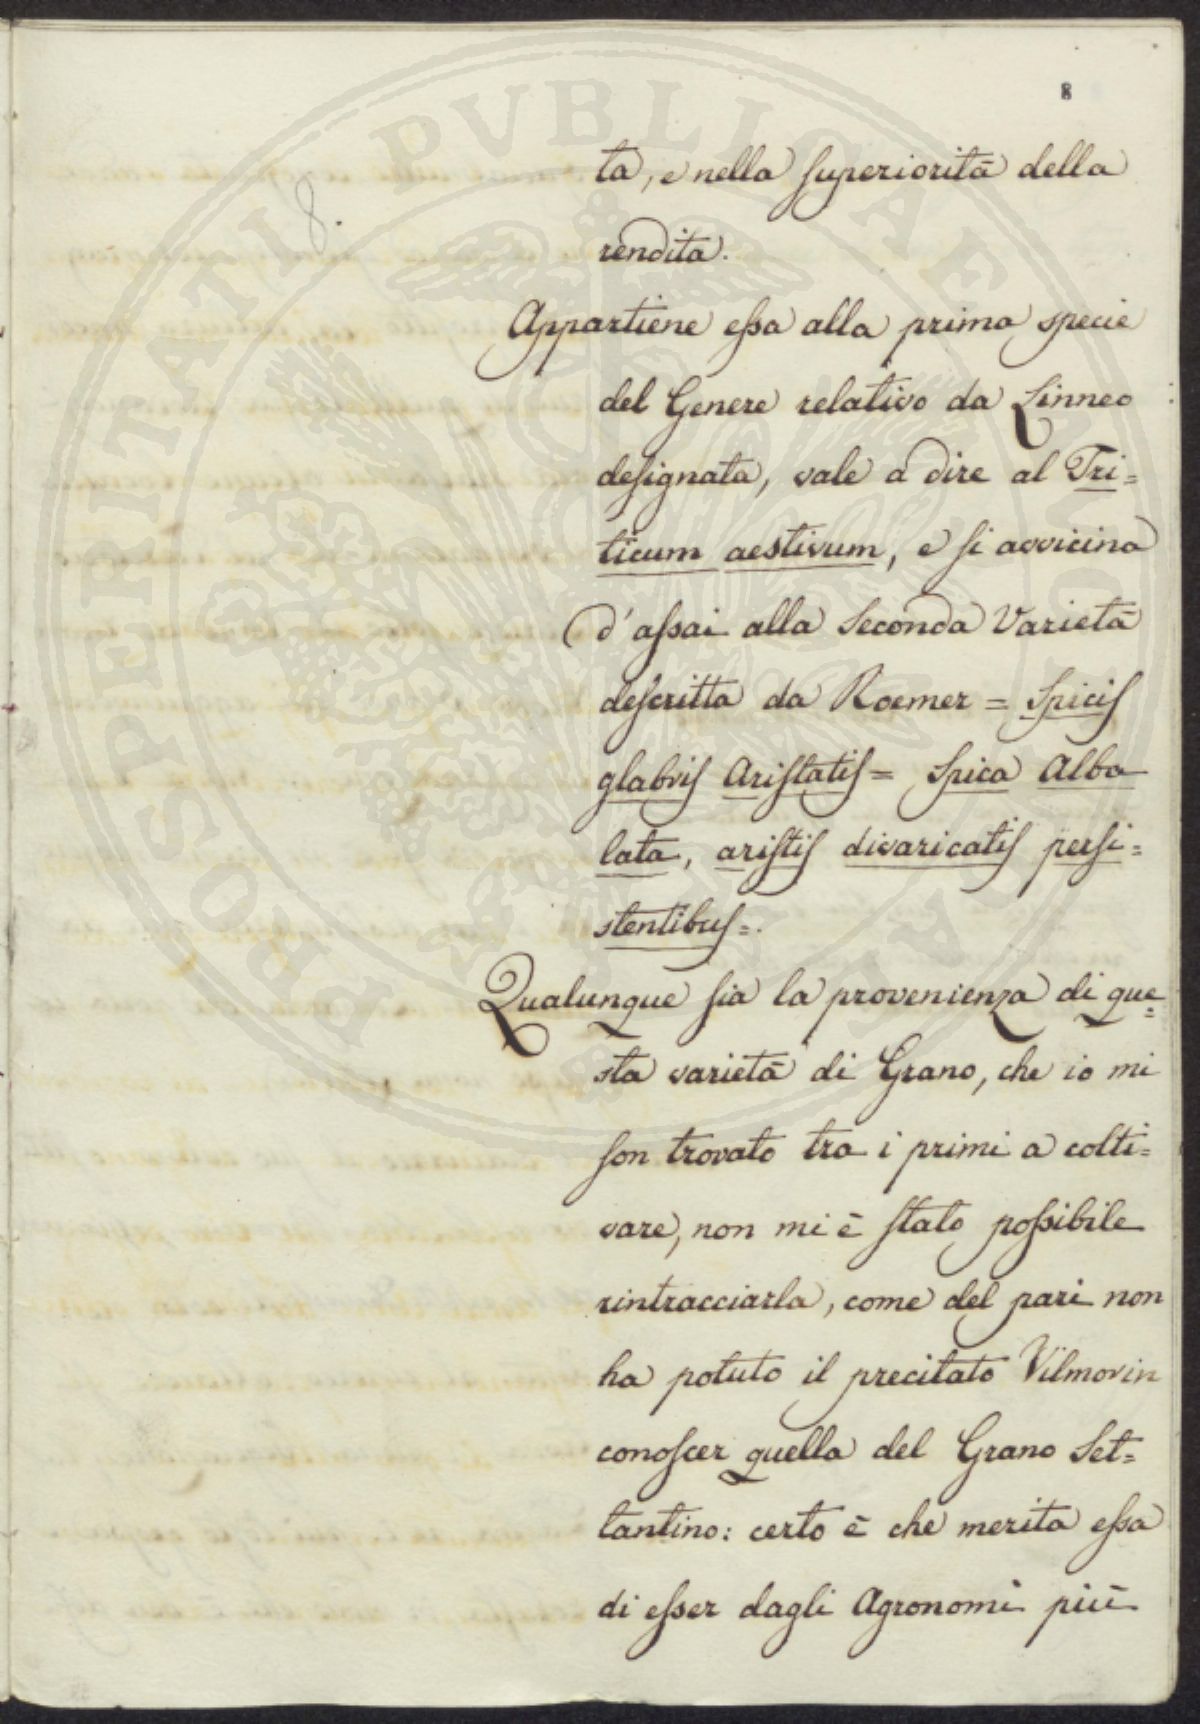 8
8.
ta, e nella superiorità della
rendita.
Appartiene essa alla prima specie
del Genere relativo da Linneo
designata, vale a dire al Tri=
ticum aestivum, e si avvicina
d'assai alla Seconda Varietà
descritta da Roemer = Spicis
glabris Aristatis = Spica Alba
lata, aristis divaricatis persi=
stentibus=.
Qualunque sia la provenienza di que=
sta varietà di Grano, che io mi
son trovato tra i primi a colti=
vare, non mi è stato possibile
rintracciarla, come del pari non
ha potuto il precitato Vilmorin
conoscer quella del Grano Set=
tantino: certo è che merita essa
di esser dagli Agronomi più
PROSPERITATI PVBLICAE AVGENDAE